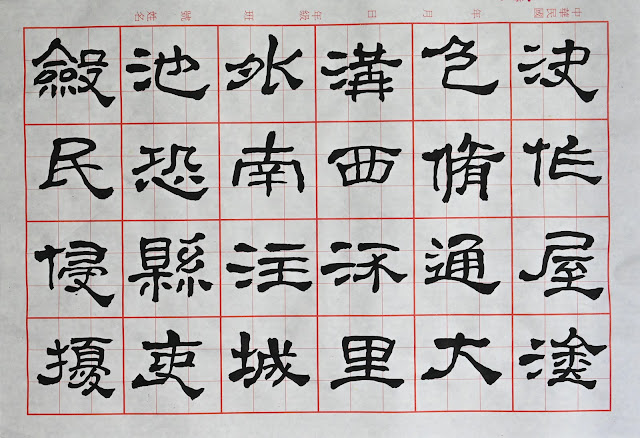 中華民國 年 月 日 年級 班 號 姓名
決作屋塗
色脩通大
溝西流里
外南注城
池恐縣吏
斂民侵擾